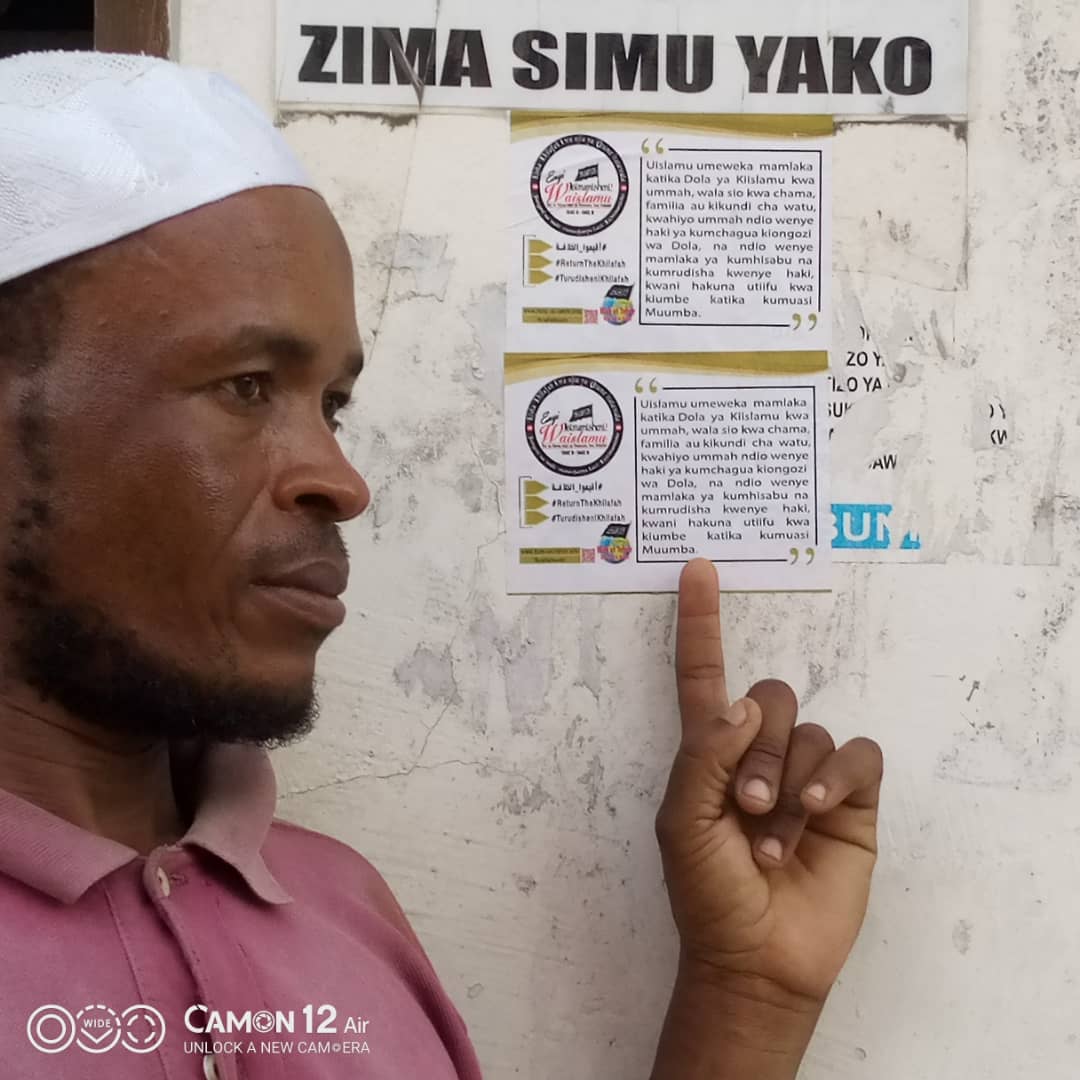 ZIMA SIMU YAKO
Enyi
Waislamu
Uislamu umeweka mamlaka
katika Dola ya Kiislamu kwa
ummah, wala sio kwa chama,
familia au kikundi cha watu,
kwahiyo ummah ndio wenye
haki ya kumchagua kiongozi
wa Dola, na ndio wenye
mamlaka ya kumhisabu na
kumrudisha kwenye haki,
kwani hakuna utiifu kwa
kiumbe katika kumuasi
Muumba.
#أقيموا_الخلافة
#ReturnTheKhilafah
#TurudisheniKhilafah
Enyi
Waislamu
Uislamu umeweka mamlaka
katika Dola ya Kiislamu kwa
ummah, wala sio kwa chama,
familia au kikundi cha watu,
kwahiyo ummah ndio wenye
haki ya kumchagua kiongozi
wa Dola, na ndio wenye
mamlaka ya kumhisabu na
kumrudisha kwenye haki,
kwani hakuna utiifu kwa
kiumbe katika kumuasi
Muumba.
#أقيموا_الخلافة
#ReturnTheKhilafah
#TurudisheniKhilafah
ZO Y
O YA
SUK
AW
KW
BUN
WIDE
CAMON 12 Air
UNLOCK A NEW CAMERA